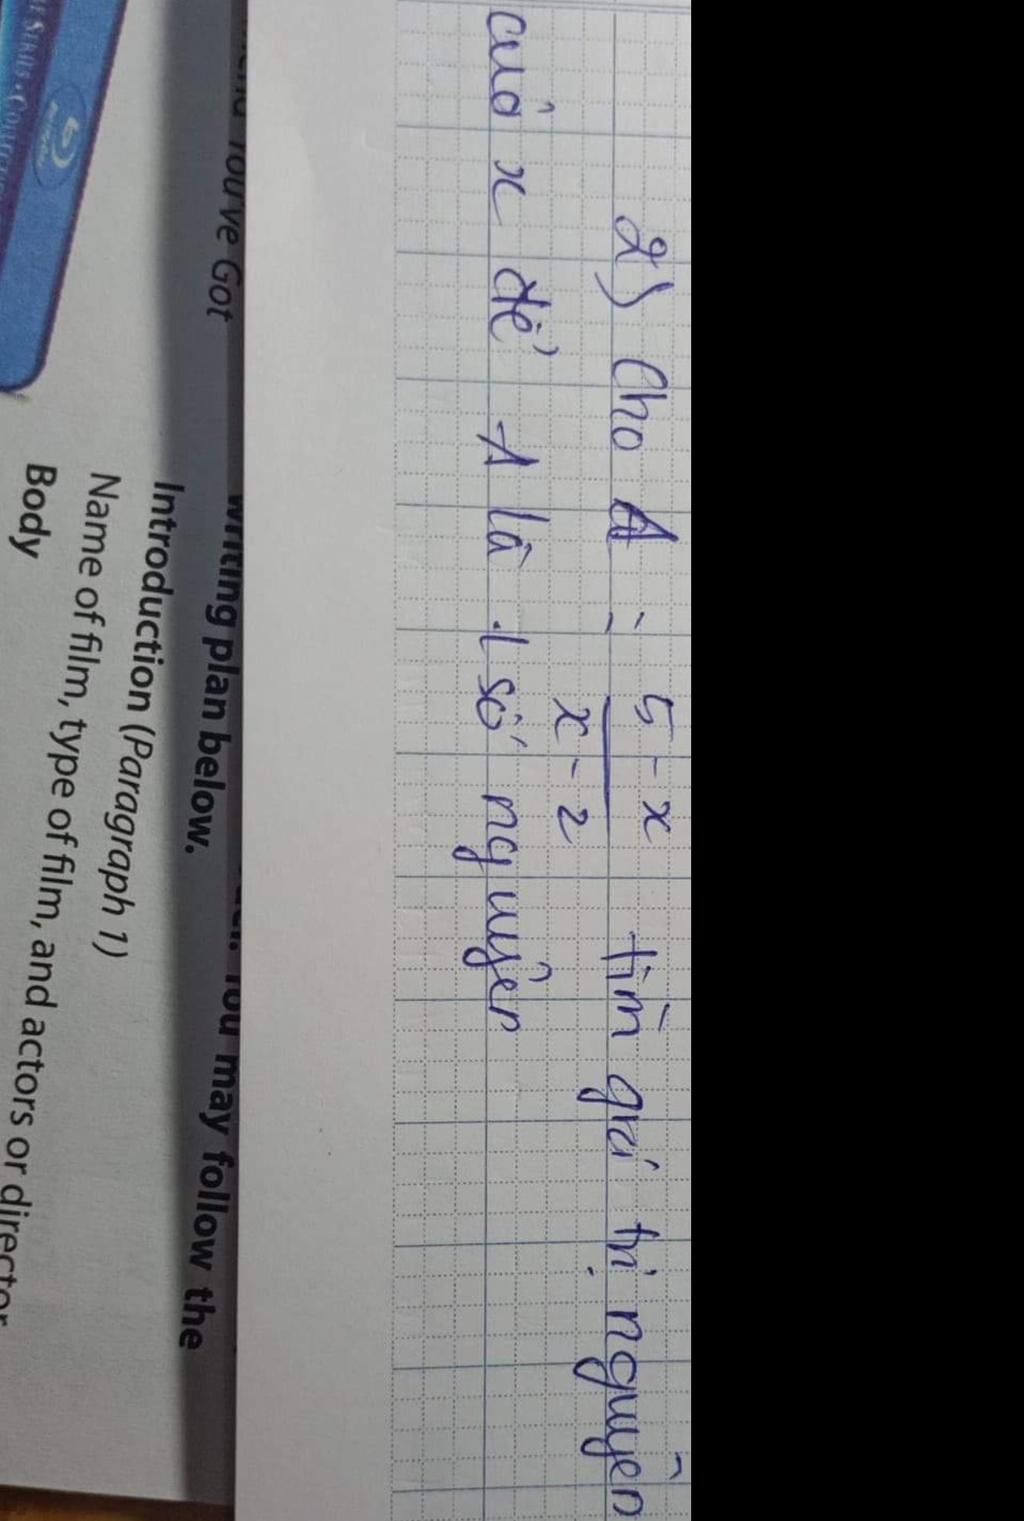 2) Cho A = 5 - x / x - 2 tìm giá trị nguyên
của x để A là 1 số nguyên
You've Got
writing plan below.
You may follow the
Introduction (Paragraph 1)
Name of film, type of film, and actors or director
Body